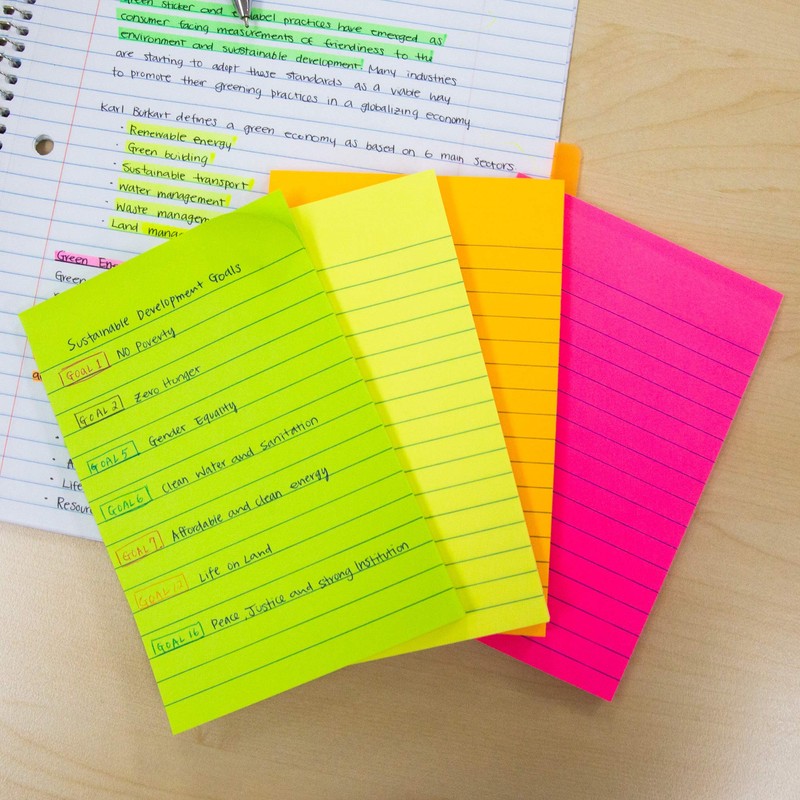 green sticker and label practices have emerged as
consumer facing measurements of friendliness to the
environment and substainable development. Many industries
are starting to adopt these standards as a viable way
to promote their greening practices in a globalizing economy
Karl Burkart defines a green economy as based on 6 main sectors
· Renewable energy
· Green building
· Sustainable transport
· Water management
· Waste managem
· Land mana
Green En
Green
Life
Resour
Sustainable Development Goals
GOAL 1 No Poverty
GOAL 2 Zero Hunger
GOAL 5 Gender Equality
GOAL 6 Clean Water and Sanitation
GOAL 7 Affordable and clean energy
Life on Land
GOAL 16 Peace, Justice and strong Institution